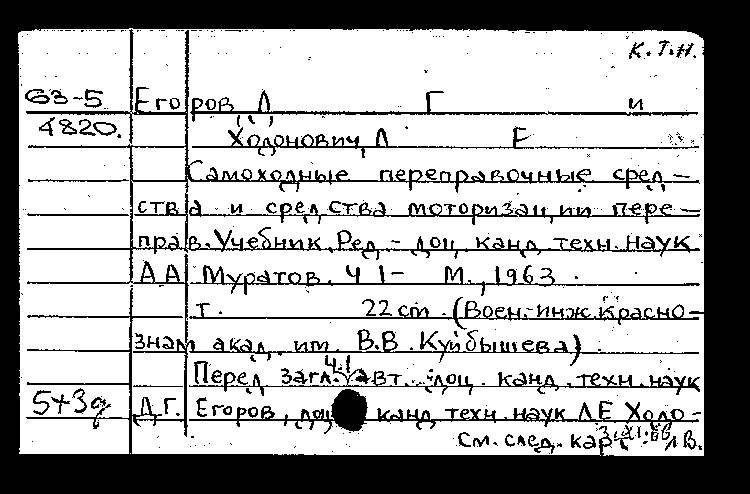 К.Т.Н.
63-5 Егоров, Д Г и
4820. Ходонович, Л Е
Самоходные переправочные сред-
ства и средства моторизации пере-
прав. Учебник. Ред.- доц. канд. техн. наук
А.А. Муратов. Ч 1- М., 1963.
т. 22 cm. (Воен.-инж. Красно-
знам. акад. им. В.В. Куйбышева).
Перед загл. ч.1 авт.: доц. канд. техн. наук
5+3д Д.Г. Егоров, доц. канд. техн. наук Л Е Холо-
См. след. кар